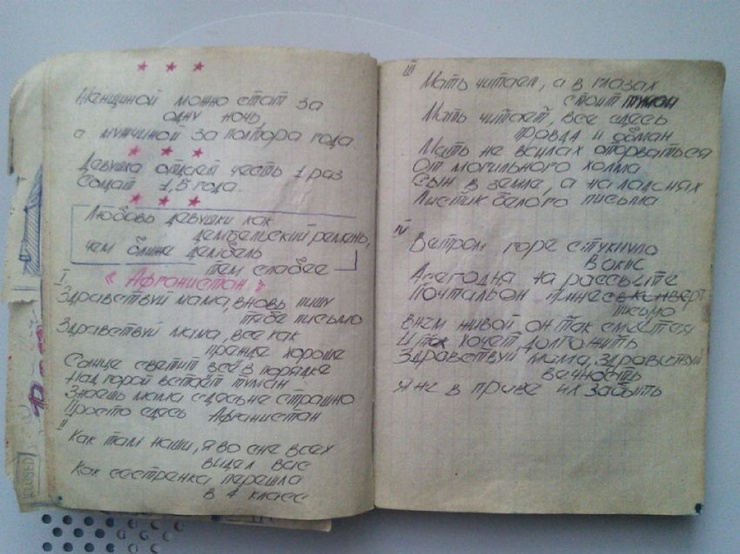 * * *
Женщиной можно стат за
одну ночь,
а мужчиной за полтора года.
* * *
Девушка отдает честь 1 раз
Солдат 1,5 года.
* * *
Любовь девушки как
дембельский ремень,
чем ближе дембель
тем слабее
I
«Афганистан»
Здравствуй мама, вновь пишу
тебе письмо
Здравствуй мама, все как
прежде хорошо
Солнце светит все в порядке
Над горой встает туман
Знаешь мама здесь не страшно
Просто здесь Афганистан
II
Как там наши, я во сне всех
видел вас
Как сестренка перешла
в 4 класс
III
Мать читает, а в глазах
стоит туман
Мать читает, все здесь
правда и обман
Мать не в силах оторваться
От могильного холма
Сын в земле, а на ладнях
Листик белого письма
IV
Ветром горе стукнуло
в окно
А сегодня на рассвете
Почтальон принес
письмо
В нем живой он так смеется
И так хочет должить
Здравствуй мама, здравствуй
вечность
Я не в праве их забыть